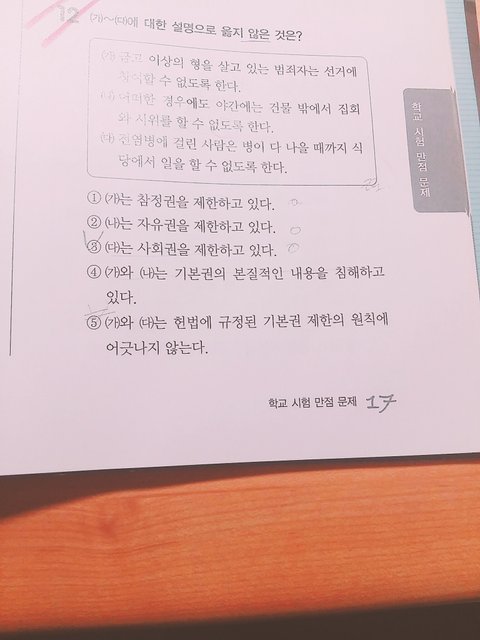 12 ㈎~㈐에 대한 설명으로 옳지 않은 것은?
㈎ 금고 이상의 형을 살고 있는 범죄자는 선거에
참여할 수 없도록 한다.
㈏ 어떠한 경우에도 야간에는 건물 밖에서 집회
와 시위를 할 수 없도록 한다.
㈐ 전염병에 걸린 사람은 병이 다 나을 때까지 식
당에서 일을 할 수 없도록 한다.
① ㈎는 참정권을 제한하고 있다.
② ㈏는 자유권을 제한하고 있다.
③ ㈐는 사회권을 제한하고 있다.
④ ㈎와 ㈏는 기본권의 본질적인 내용을 침해하고
있다.
⑤ ㈎와 ㈐는 헌법에 규정된 기본권 제한의 원칙에
어긋나지 않는다.
학교 시험 만점 문제
학교 시험 만점 문제 17